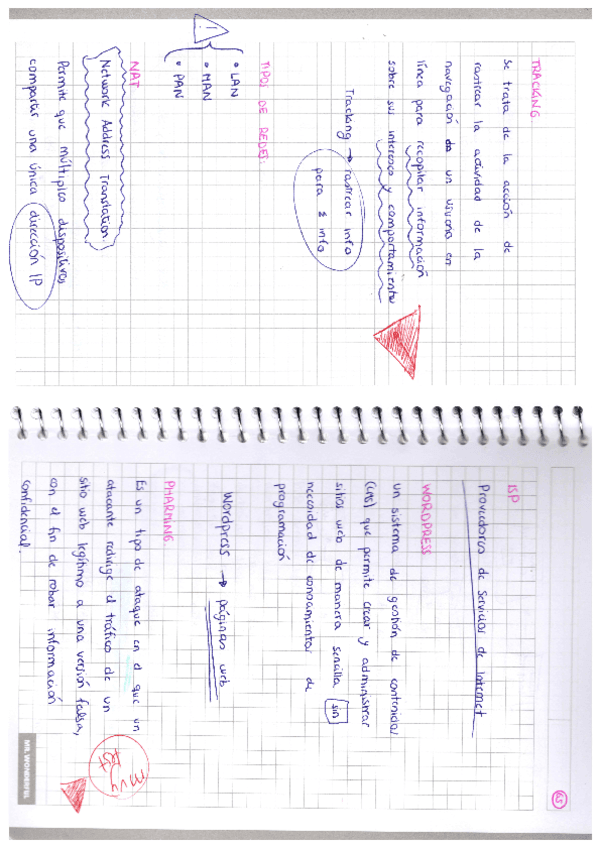 TRACKING:
Se trata de la acción de
rastrear la actividad de la
navegación de un usuario en
línea para recopilar información
sobre sus intereses y comportamiento
Tracking → rastrear info
para
info
TIPOS DE REDES:
• LAN
• MAN
• PAN
NAT
Network Address Translation
Permite que múltiples dispositivos
compartir una única dirección IP
ISP
Proveedores de Servicios de Internet
WORDPRESS
un sistema de gestión de contenidos
(CMS) que permite crear y administrar
sitios web de manera sencilla sin
necesidad de conocimientos de
programación
Wordpress → páginas web
PHARMING
Es un tipo de ataque en el que un
atacante redirige el tráfico de un
sitio web legítimo a una versión falsa,
con el fin de robar información
confidencial.
muy
MR. WONDERFUL